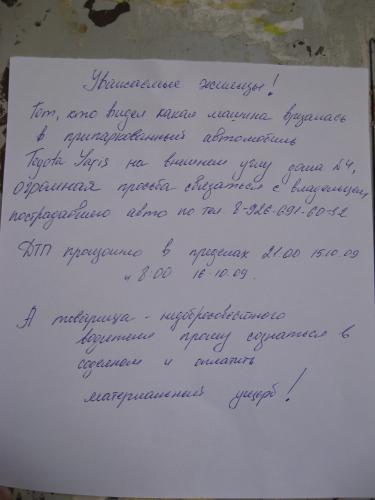 Уважаемые жильцы!
Тот, кто видел какая машина врезалась
в припаркованный автомобиль
Toyota Yaris на внешнем углу дома №4,
огромная просьба связаться с владельцем
пострадавшего авто по тел. 8-926-691-60-32
ДТП произошло в пределах 21.00 15.10.09
и 8:00 16-10.09.
А товарища - недобросовестного
водителя прошу сознаться в
содеянном и оплатить
материальный ущерб!